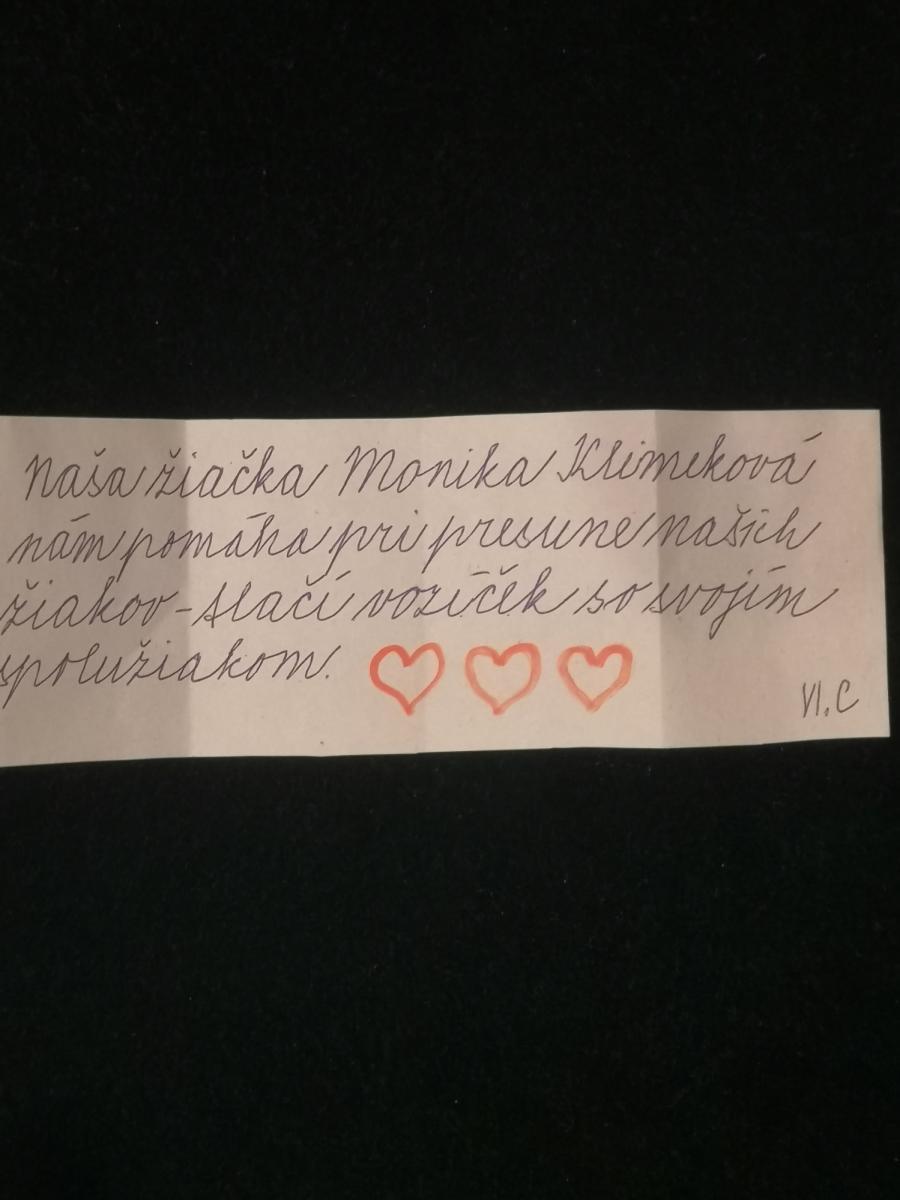 Naša žiačka Monika Klimeková
nám pomáha pri presune našich
žiakov - tlačí vozíček so svojím
spolužiakom.
VI. C